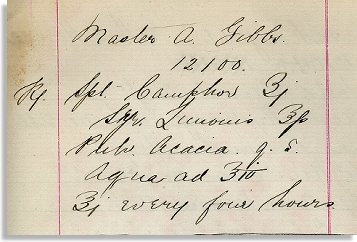 Master A. Gibbs.
12100.
℞. Spt. Camphor ʒj
Syr. Limonis ʒſs
Pulv. Acacia q. s.
Aqua ad ʒiii
ʒj every four hours